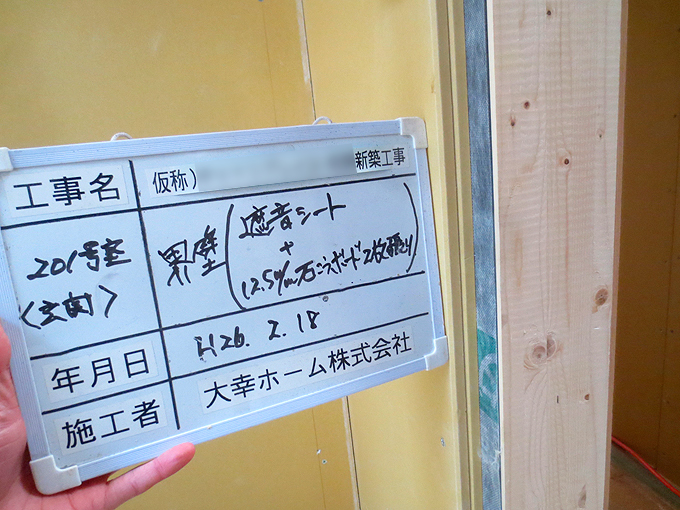 工事名
仮称)
新築工事
201号室
<玄関>
界壁
遮音シート
+
12.5m/m石こうボード2枚張り
年月日
H26. 2. 18
施工者
大幸ホーム株式会社